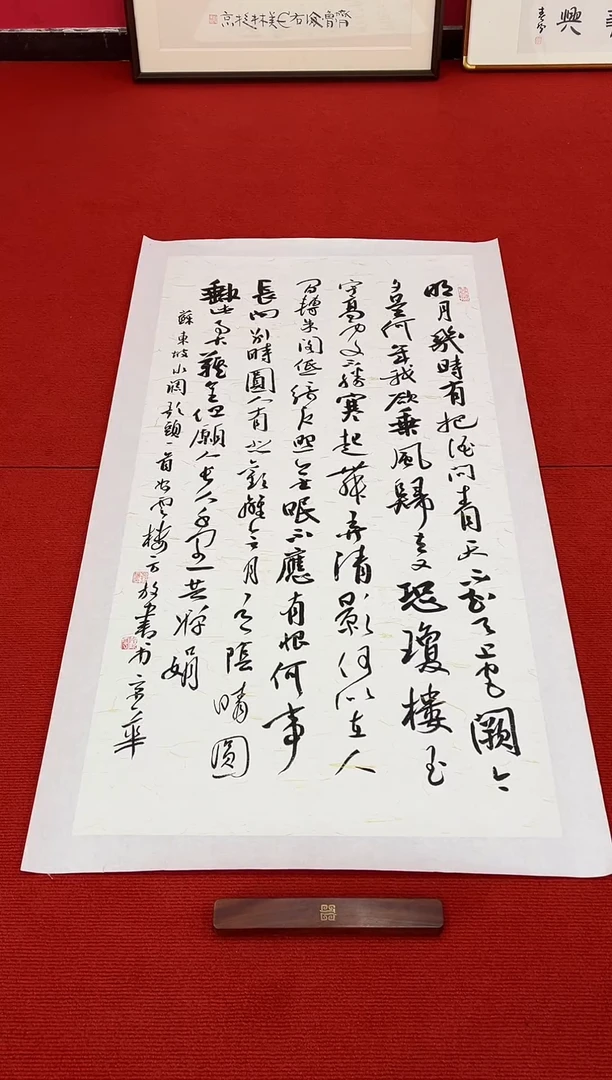 興
明月幾時有把酒問青天不知天上宮闕今
夕是何年我欲乘風歸去又恐瓊樓玉
宇高處不勝寒起舞弄清影何似在人
間轉朱閣低綺戶照無眠不應有恨何事
長向別時圓人有悲歡離合月有陰晴圓
缺此事古難全但願人長久千里共嬋娟
蘇東坡水調歌頭一首 雲樓 放書於京華